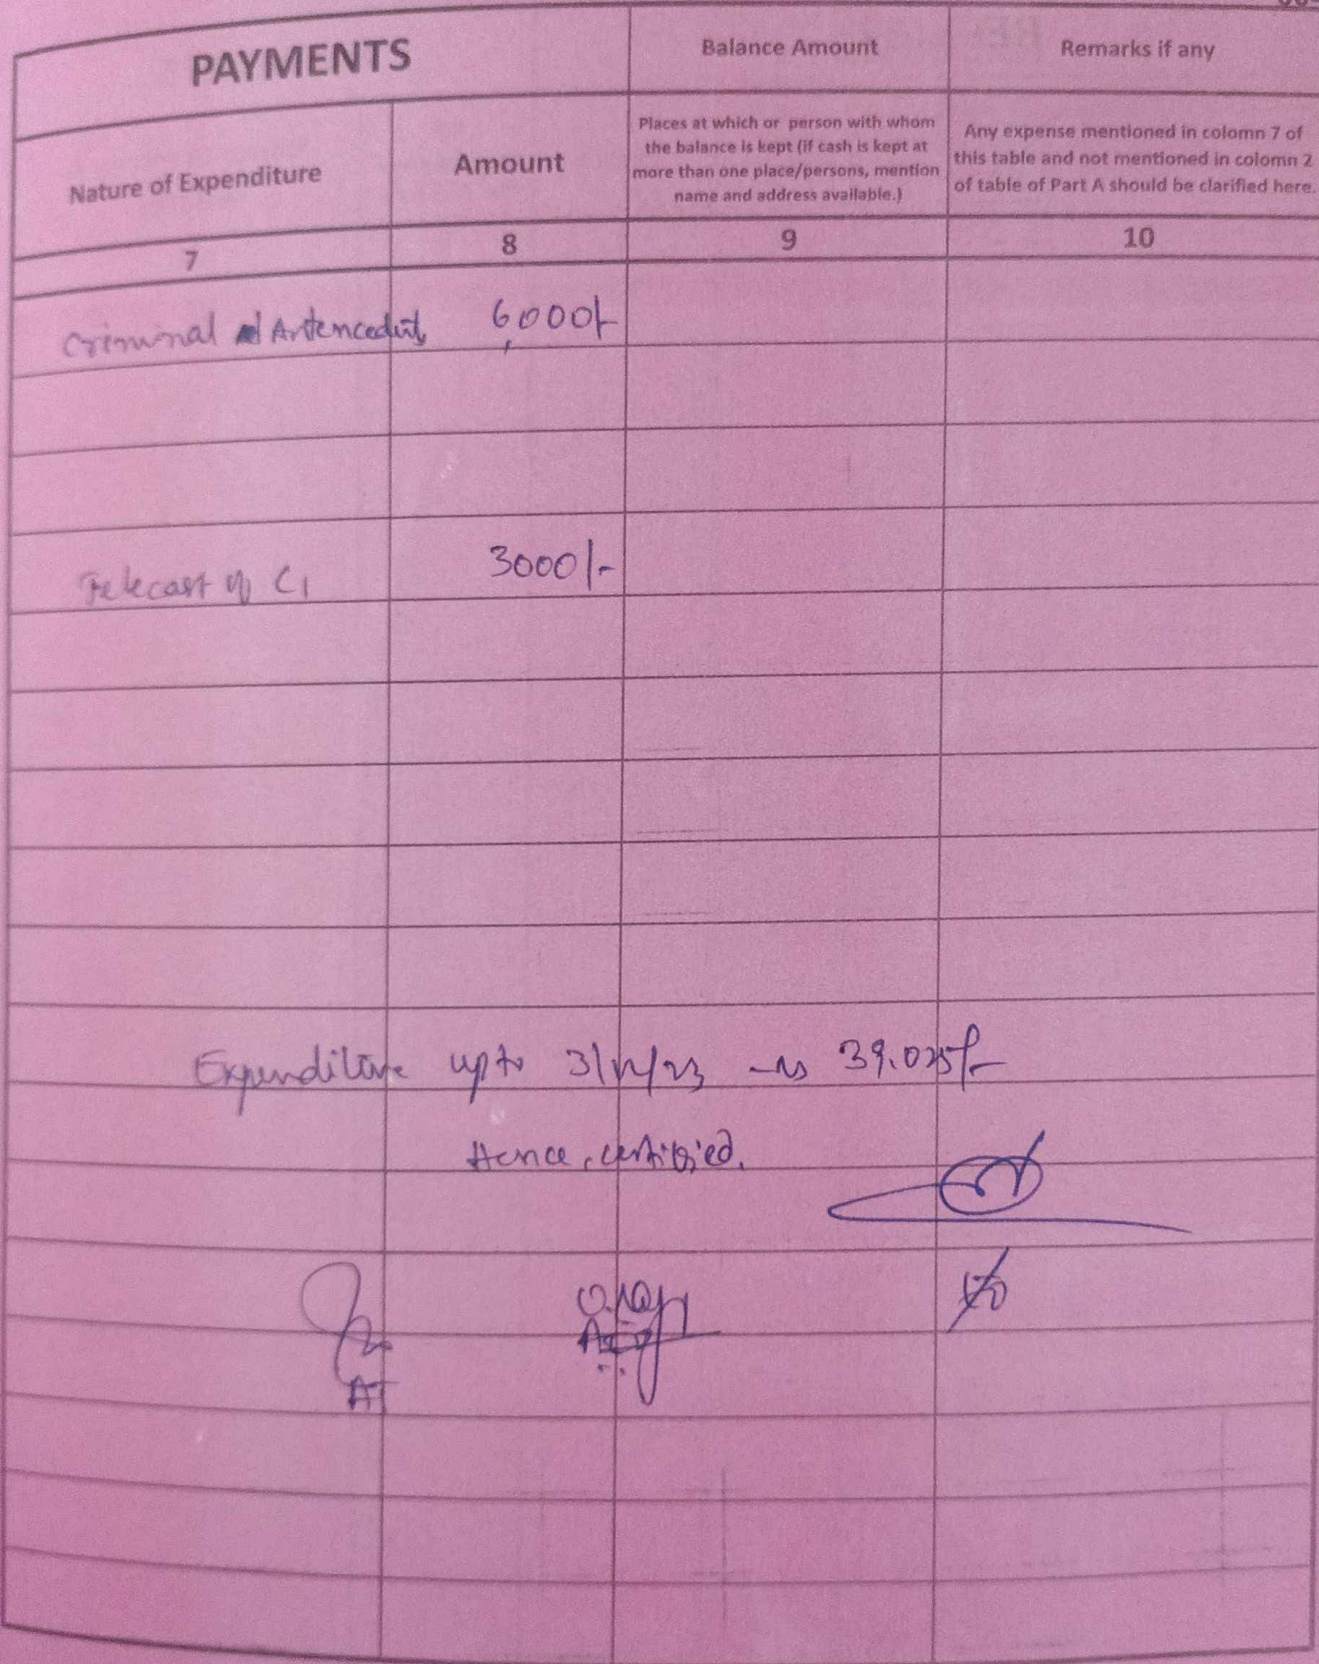 PAYMENTS
Balance Amount
Remarks if any
Nature of Expenditure
Amount
Places at which or person with whom
the balance is kept (if cash is kept at
more than one place/persons, mention
name and address available.)
Any expense mentioned in colomn 7 of
this table and not mentioned in colomn 2
of table of Part A should be clarified here.
7
8
9
10
Criminal Antencedents 6,000/-
Telecast of C1 3000/-
Expenditure upto 3/12/23 39.025/-
Hence, certified.
AT